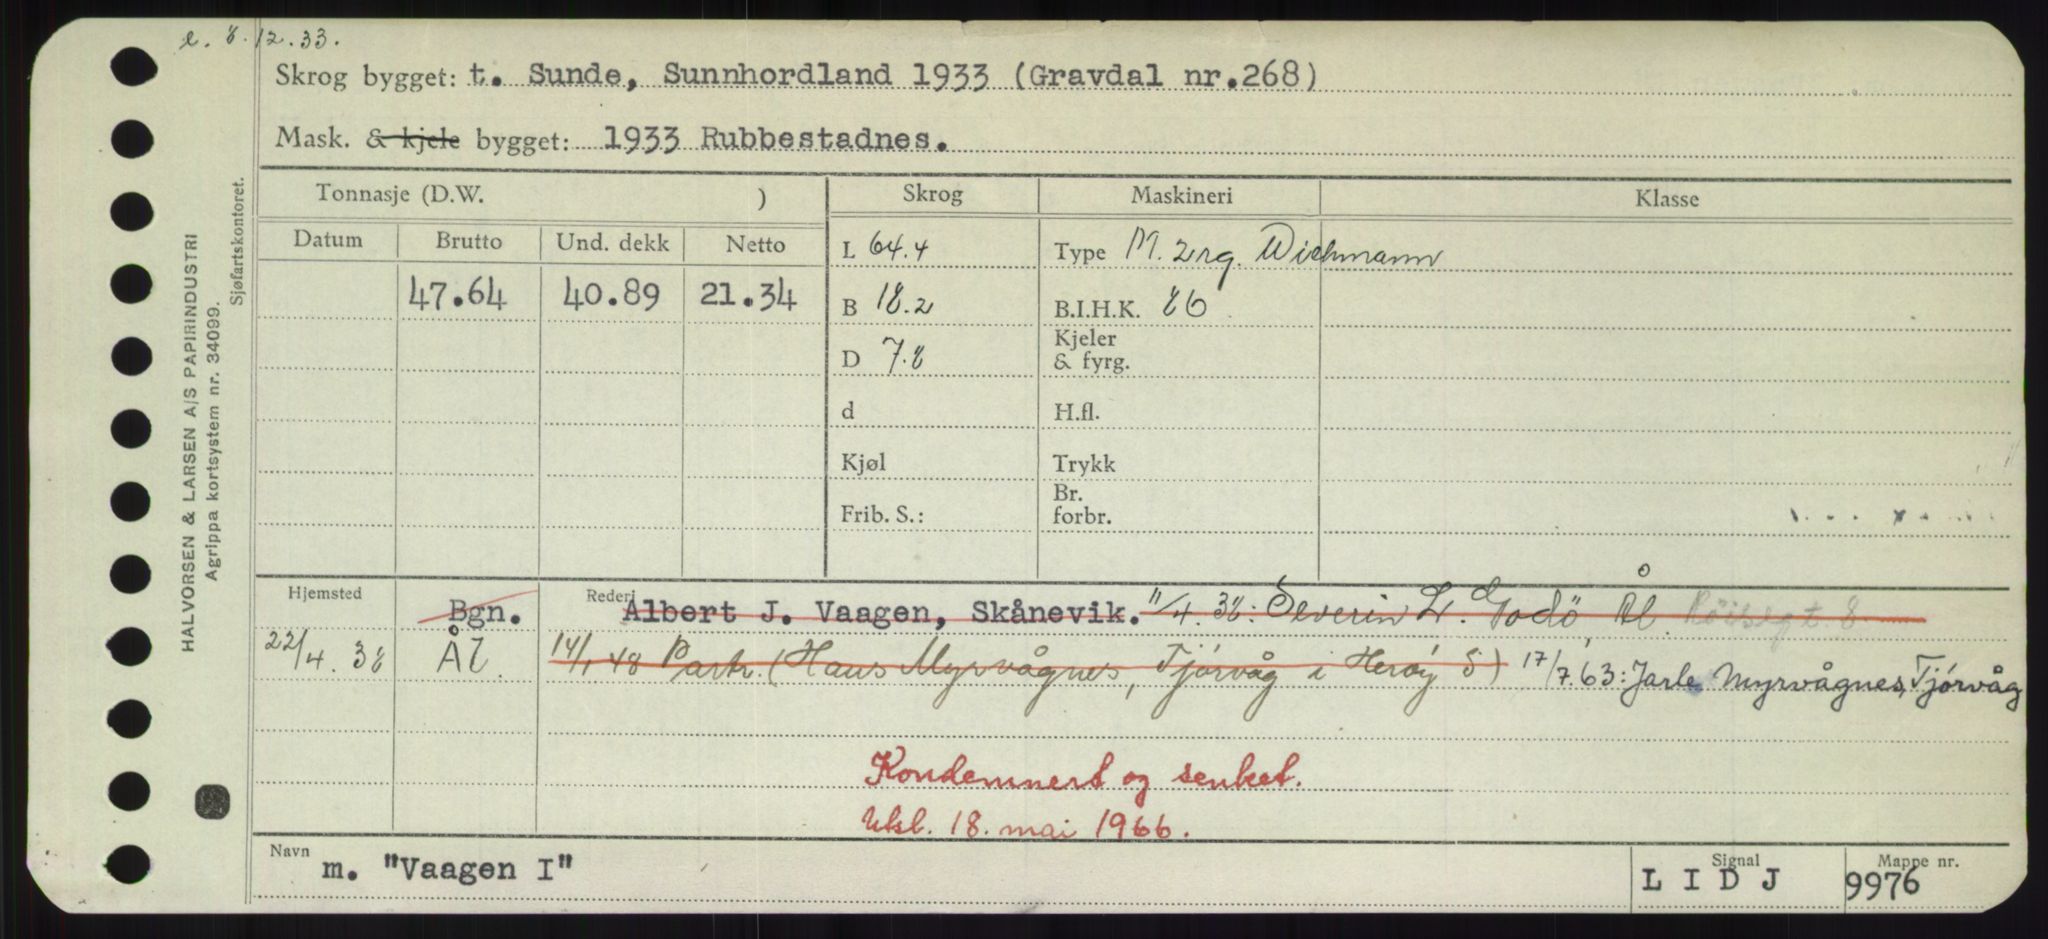 e. 8.12.33.
Skrog bygget: t. Sunde, Sunnhordland 1933 (Gravdal nr.268)
Mask. & kjele bygget: 1933 Rubbestadnes.
Tonnasje (D.W. ) Skrog Maskineri Klasse
Datum Brutto Und. dekk Netto L 64.4 Type M. 2 rg. Wichmann
47.64 40.89 21.34 B 18.2 B.I.H.K. 86
D 7.8 Kjeler & fyrg.
d H.fl.
Kjøl Trykk
Frib. S.: Br. forbr.
Hjemsted Bgn. Rederi Albert J. Vaagen, Skånevik. 11/4.38: Severin L. Godö, Ål.
22/4.38 Ål. 14/1 48 Partr. (Hans Myrvågnes, Tjörvåg i Heröy S) 17/7.63: Jarle Myrvågnes, Tjörvåg
Kondemnert og senket.
Uksl. 18. mai 1966.
Navn m. "Vaagen I" Signal L I D J Mappe nr. 9976
HALVORSEN & LARSEN A/S PAPIRINDUSTRI
Agrippa kortsystem nr. 34099.
Sjøfartskontoret.